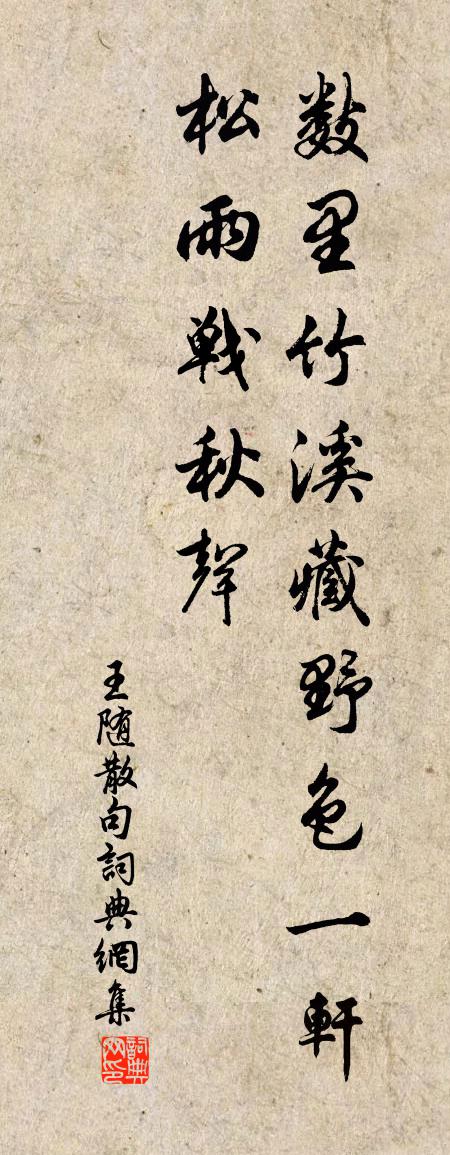 數里竹溪藏野色一軒
松雨戰秋聲
王随散句詞典網集
詞典网印